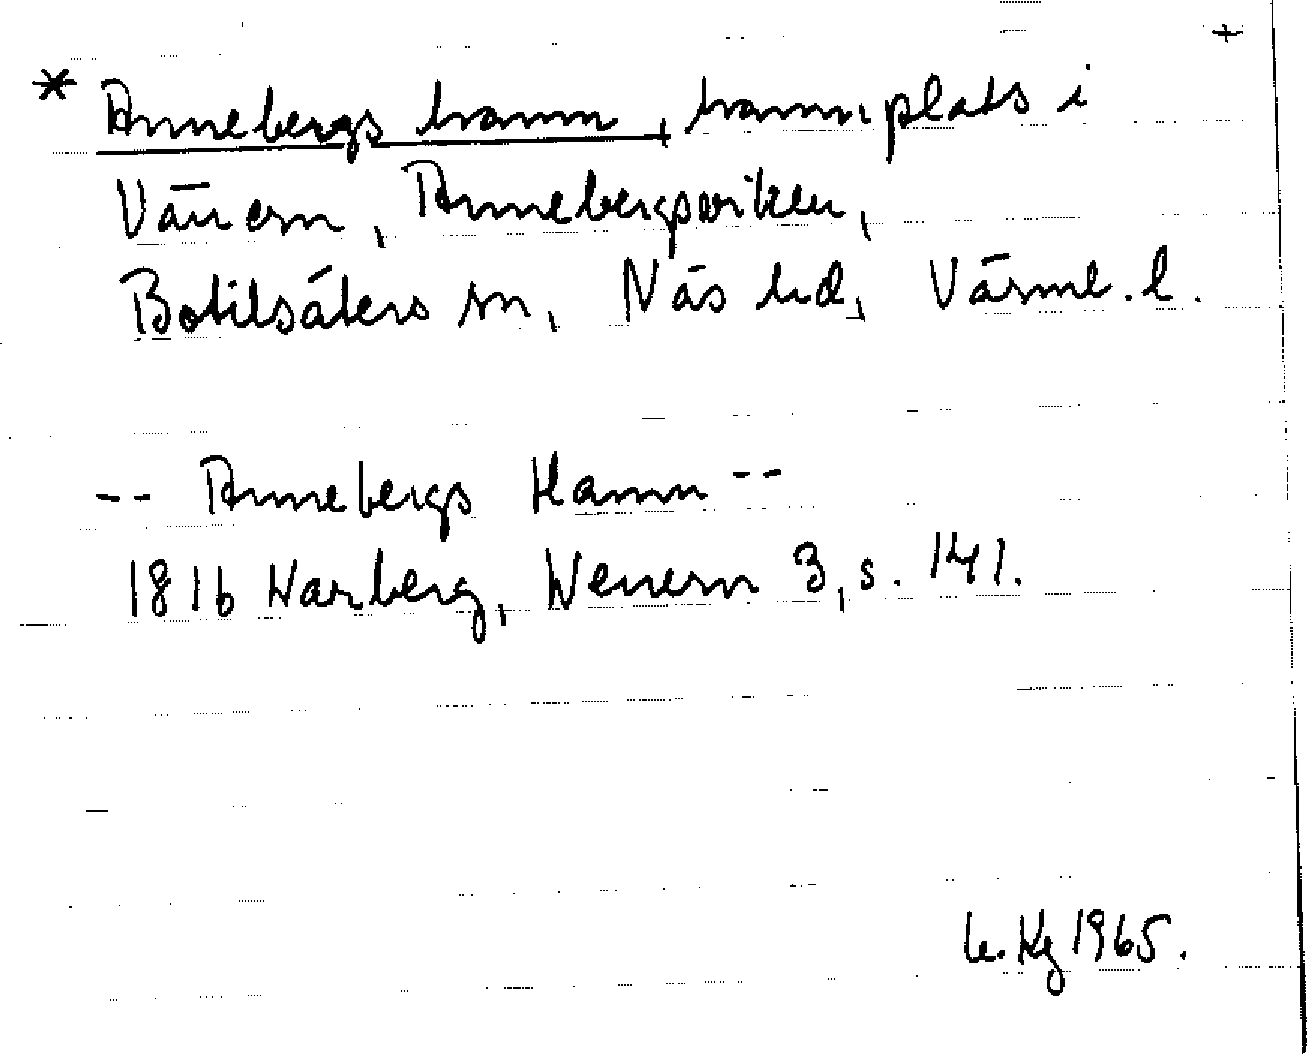 +
* Annebergs hamn, hamnplats i
Vänern, Annebergsviken,
Botilsäters sn, Näs hd, Värml. l.
-- Annebergs Hamn --
1816 Warberg, Wenern 3, s. 141.
1965.